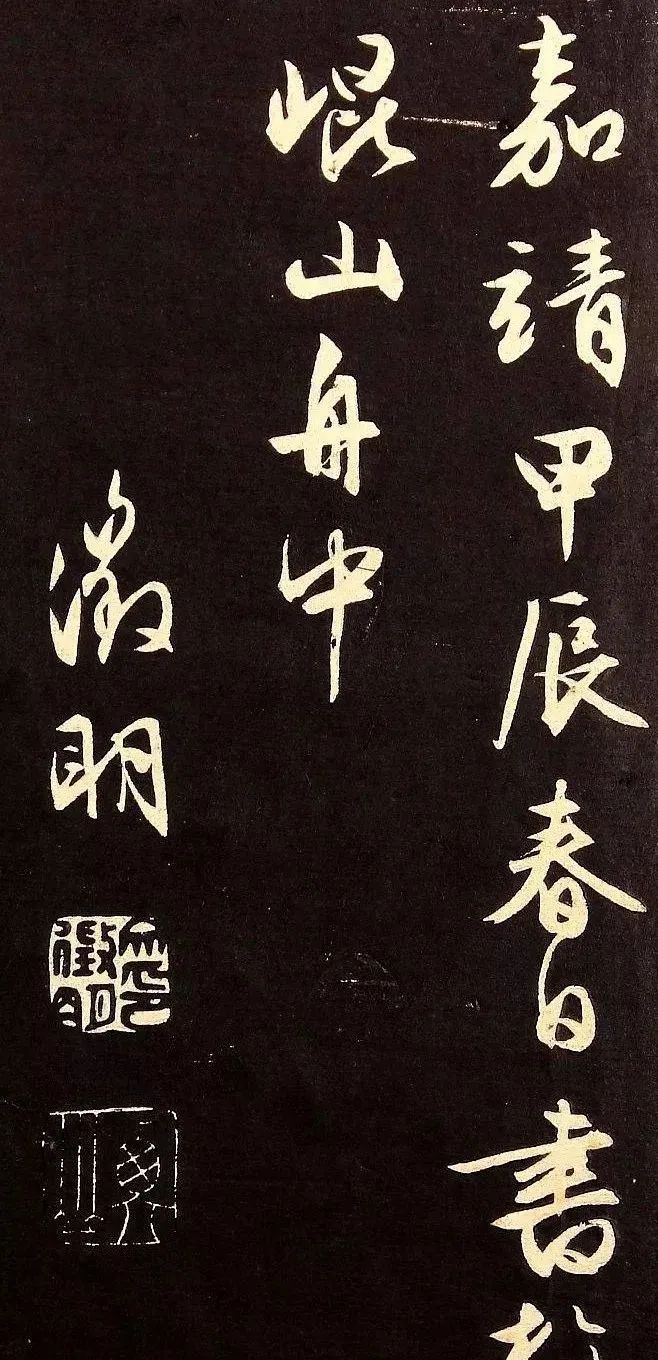 嘉靖甲辰春日書於
崐山舟中
徵明